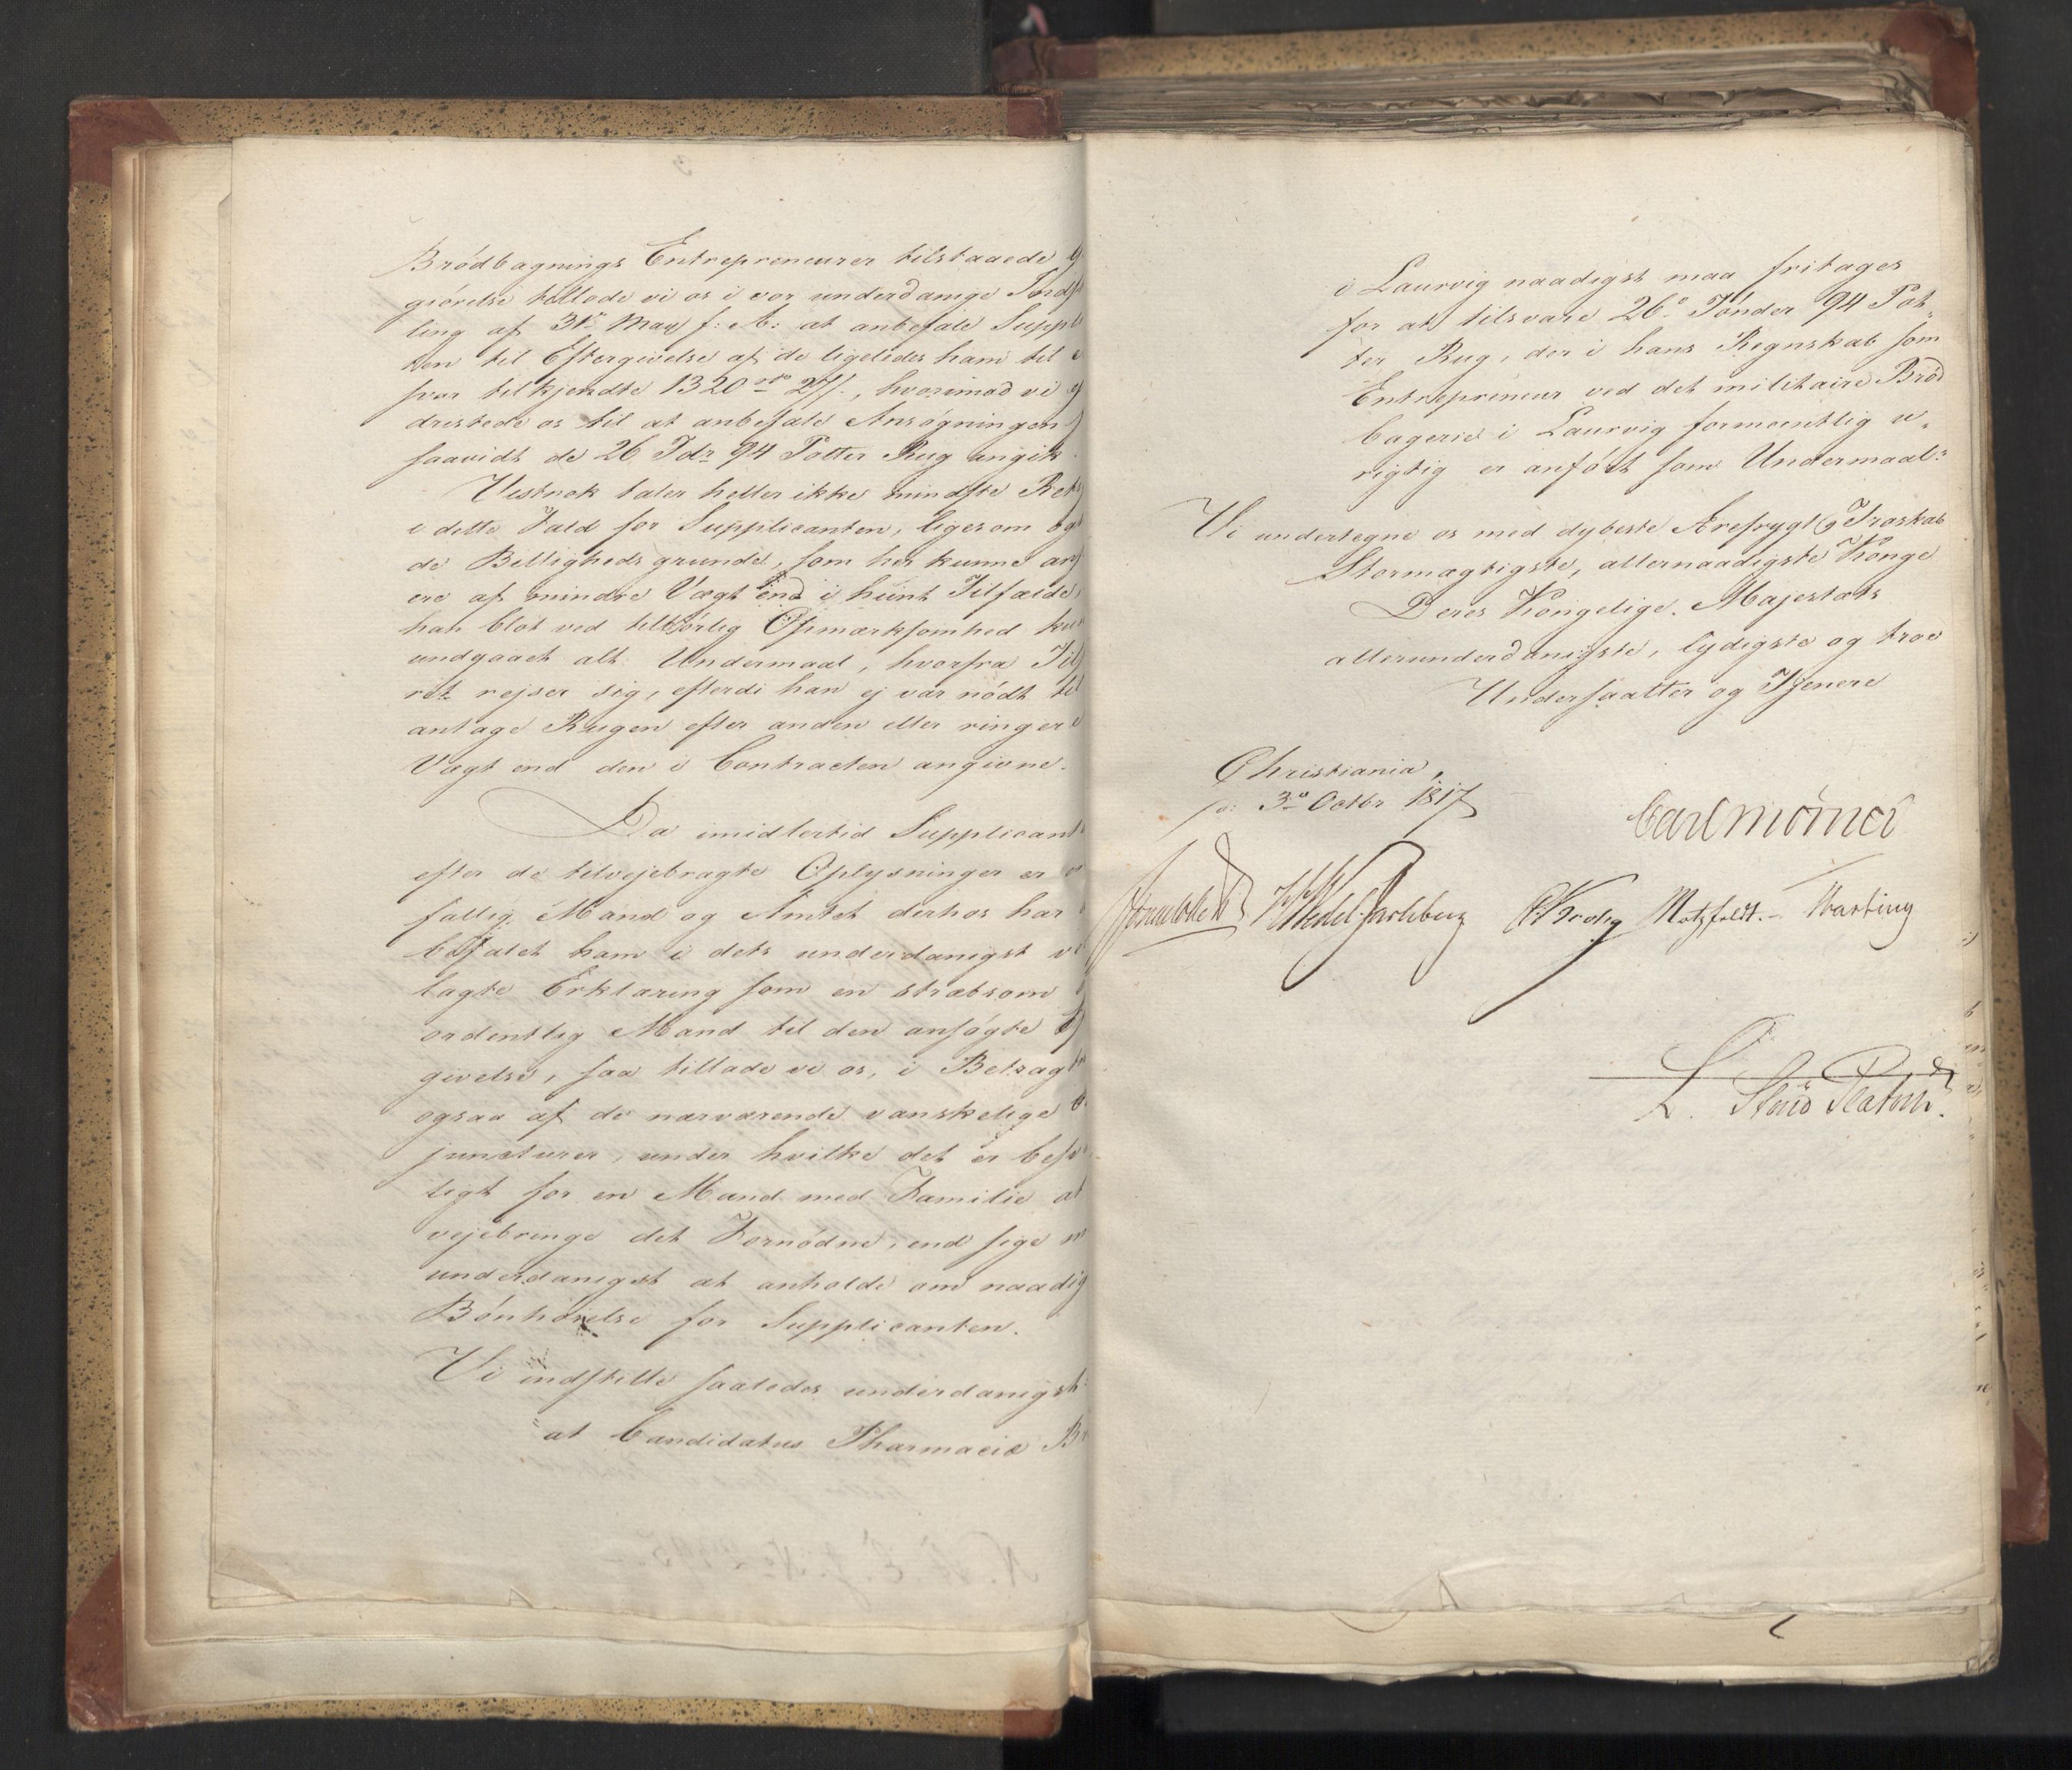 Brödbagnings Entrepreneurer tilstaaede
giörelse tillode vi os i vor underdanige Indst
ling af 31te May f: A: at anbefale Suppli
ten til Eftergivelse af de ligeledes ham til
svar tilkjendte 1320 rdr 27 s., hvorimod vi
dristede os til at anbefale Ansögningen
saavidt de 26 Tdr 94 Potter Rug angik
Vistnok taler heller ikke mindste Ret
i dette Fald for Supplicanten, ligesom og
de Billigheds grunde, som her kunne an
ere af mindre Vægt end i hiint Tilfælde
han blot ved tilbörlig Opmærksomhed ku
undgaaet alt Undermaal, hvorfra Til
ret rejser sig, efterdi han ej var nödt til
antage Rugen efter anden eller ringere
Vægt end den i Contracten angivne.
Da imidlertid Supplicant
efter de tilvejebragte Oplysninger er
fattig Mand og Amtet derhos har
befalet ham i dets underdanigst v
lagte Erklæring som en stræbsom
ordentlig Mand til den ansögte
givelse, saa tillade vi os, i Betragt
ogsaa af de nærværende vanskelige
juncturer, under hvilke det er besv
ligt for en Mand med Familie at
vejebringe det Fornödne, end sige
underdanigst at anholde om naadig
Bönhörelse for Supplicanten.
Vi indstille saaledes underdanigst:
"at Candidatus Pharmaciæ B
i Laurvig naadigst maa fritages
for at tilsvare 26 Tönder 94 Pot-
ter Rug, der i hans Regnskab som
Entrepreneur ved det militaire Bröd
bagerie i Laurvig formeentlig u-
rigtig er anfört som Undermaal"
Vi undertegne os med dybeste Ærefrygt og Troskab
Stormægtigste, allernaadigste Konge
Deres Kongelige Majestæts
allerunderdanigste, lydigste og troe
Undersaatter og Tjenere
Christiania,
d: 3die Octbr 1817
Carl Mörner
Sommerhielm HWedel Jarlsberg CKrohg Motzfeldt. Harbiny
L. Stoud Platou.